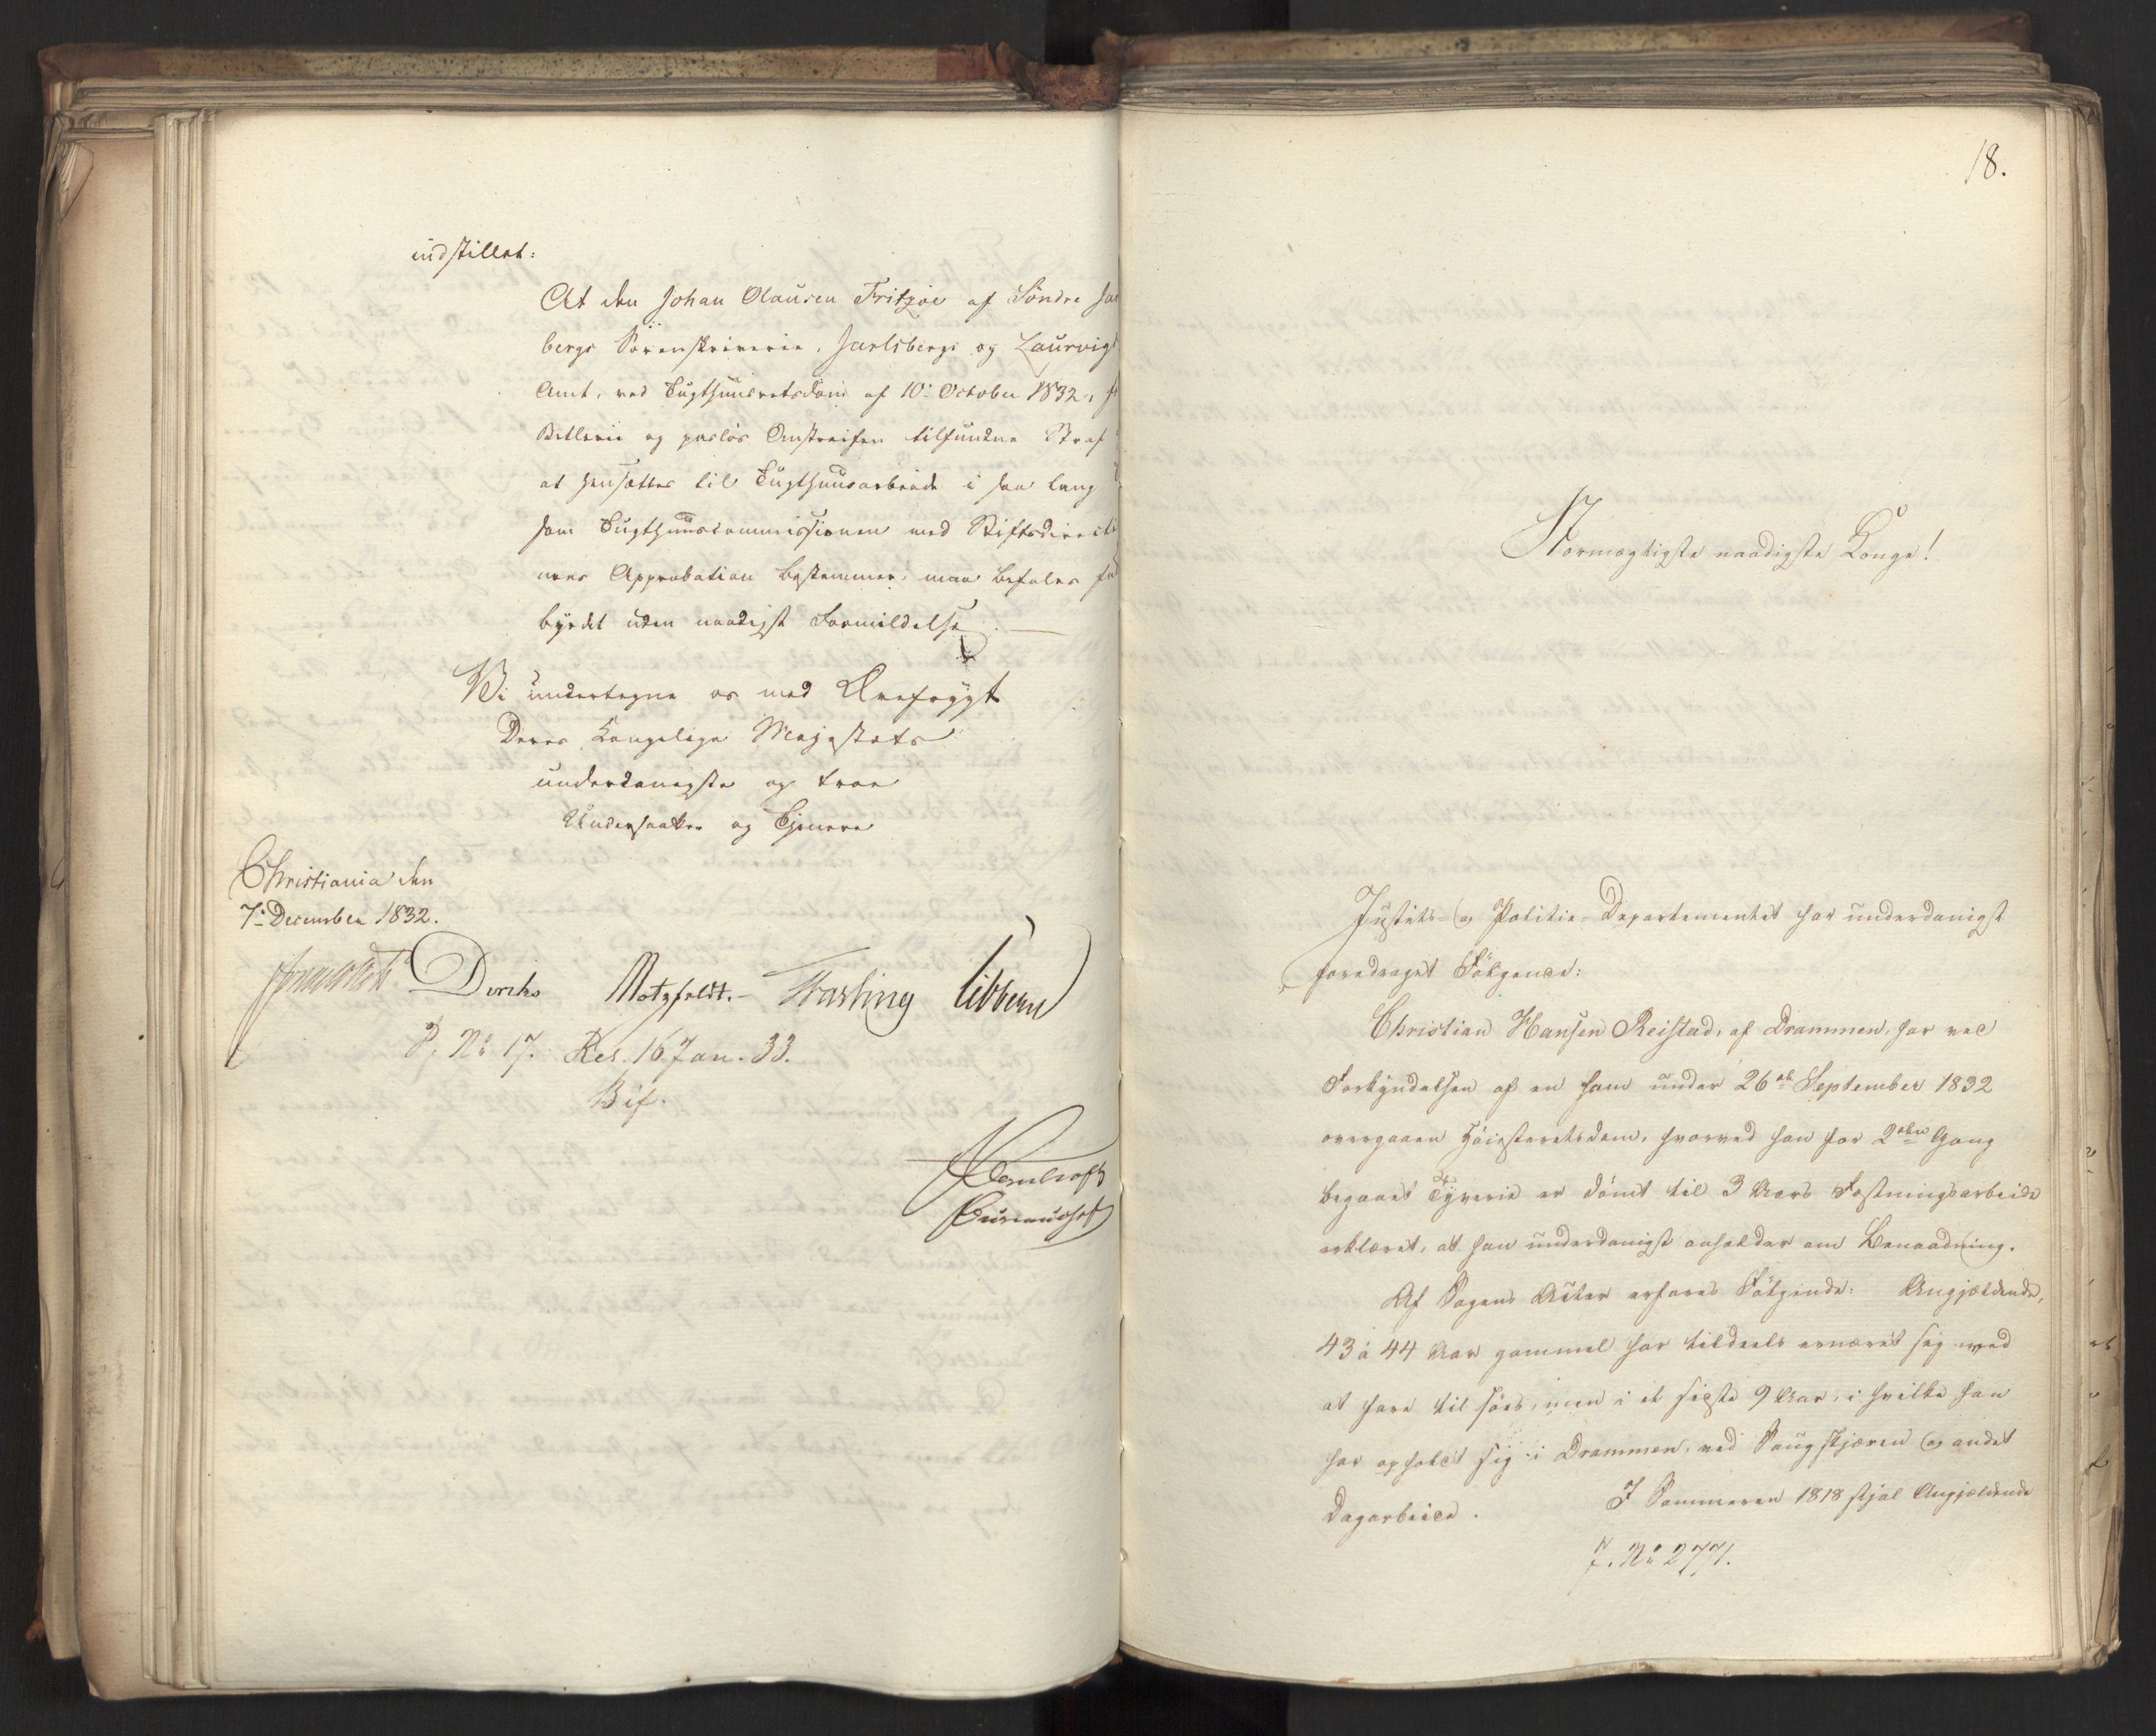 indstillet:
At den Johan Olausen Fritzøe af Söndre Jar
bergs Sorenskriverie, Jarlsbergs og Laurvigs
Amt, ved Tugthuusretsdom af 10de October 1832, f
Betlerie og pasløs Omstreifen tilfundne Straf
at hensættes til Tugthuusarbeide i saa lang
som Tugthuuscommissionen med Stiftsdirecti
nens Approbation bestemmer, maa befales ful
byrdet uden naadigst Formildelse.
Vi undertegne os med Ærefrygt
Deres Kongelige Majestæts
underdanigste og troe
Undersaatter og Tjenere
Christiania den
7de December 1832.
Diriks Motzfeldt. Fasting Sibbern
P. No 17. Res. 16 Jan. 33.
Bif.
18.
Stormægtigste naadigste Konge!
Justits- og Politie-Departementet har underdanigst
foredraget Følgende:
Christian Hansen Reistad, af Drammen, har ved
Forkyndelsen af en ham under 26de September 1832
overgaaen Høiesteretsdom, hvorved han for 2den Gang
begaaet Tyverie er dømt til 3 Aars Fæstningsarbeide
erklæret, at han underdanigst anholder om Benaadning.
Af Sagens Acter erfares Følgende: Angjældende,
43 à 44 Aar gammel har tildeels ernæret sig med
at fare til søes, men i de sidste 9 Aar, i hvilke han
har opholdt sig i Drammen, ved Saugskjæren og andet
Dagarbeide. I Sommeren 1818 stjal Angjældende
J. No 277.